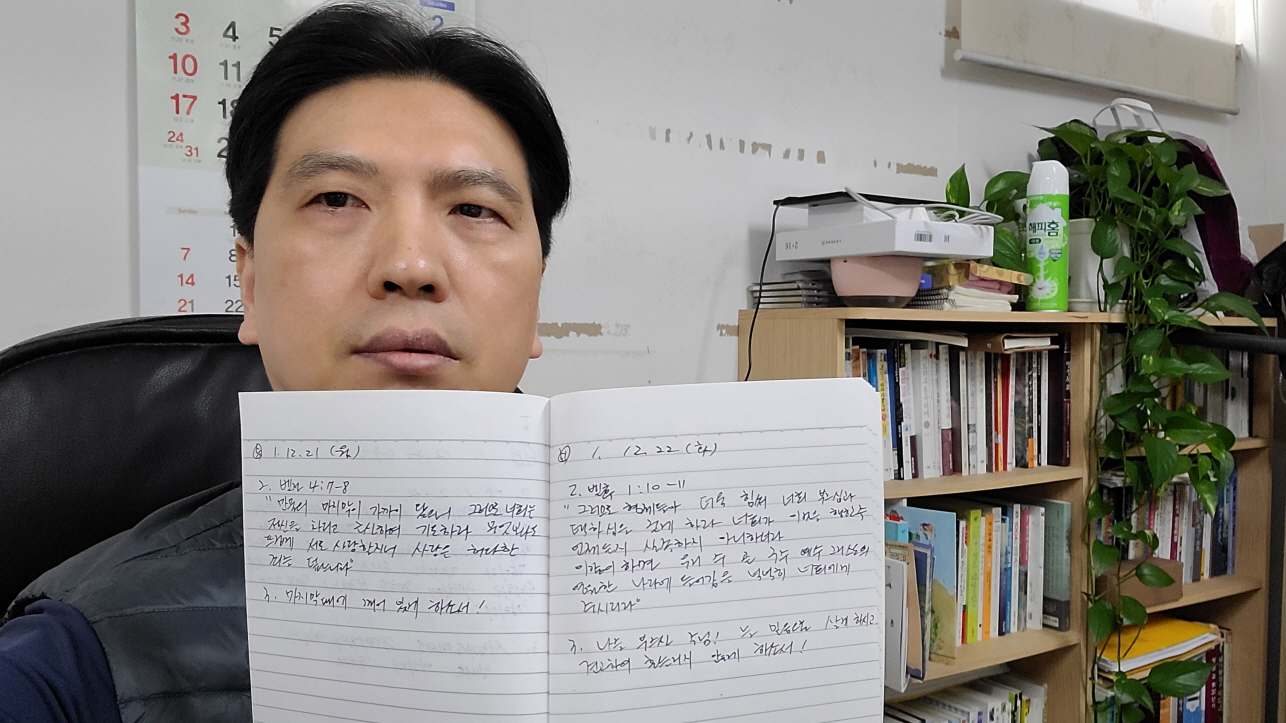 Saturday
2
3 4 5
10 11
17 18
24
31
Sunday
7 8
14 15
21 22
1. 12. 21 (월)
2. 벧전 4:7-8
"만물의 마지막이 가까이 왔으니 그러므로 너희는
정신을 차리고 근신하여 기도하라 무엇보다도
뜨겁게 서로 사랑할지니 사랑은 허다한
죄를 덮느니라"
3. 마지막 때에 깨어 있게 하소서!
1. 12. 22 (화)
2. 벧후 1:10-11
"그러므로 형제들아 더욱 힘써 너희 부르심과
택하심을 굳게 하라 너희가 이것을 행한즉
언제든지 실족하지 아니하리라
이같이 하면 우리 주 곧 구주 예수 그리스도의
영원한 나라에 들어감을 넉넉히 너희에게
주시리라"
3. 나를 부르신 주님! 늘 믿음으로 살게 하시고
견고하여 흔들리지 않게 하소서!
해피홈